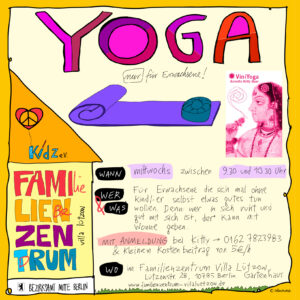 YOGA
nur für Erwachsene!
ViniYoga
Kidz e.V.
FAMILIE
ZEN
TRUM
villa lützow
BEZIRKSAMT MITTE BERLIN
WANN
mittwochs zwischen 9.30 und 10.30 Uhr
WER & WAS
Für Erwachsene die sich mal ohne
kind/-er selbst etwas gutes tun
wollen. Denn wer in sich ruht und
gut mit sich ist, der kann mit
Wonne geben
MIT ANMELDUNG bei Kitty → 0162 7823983
& kleinen Kostenbeitrag von 5€/h
WO
im Familienzentrum Villa Lützow,
Lützowstr. 28, 10785 Berlin Gartenhaus